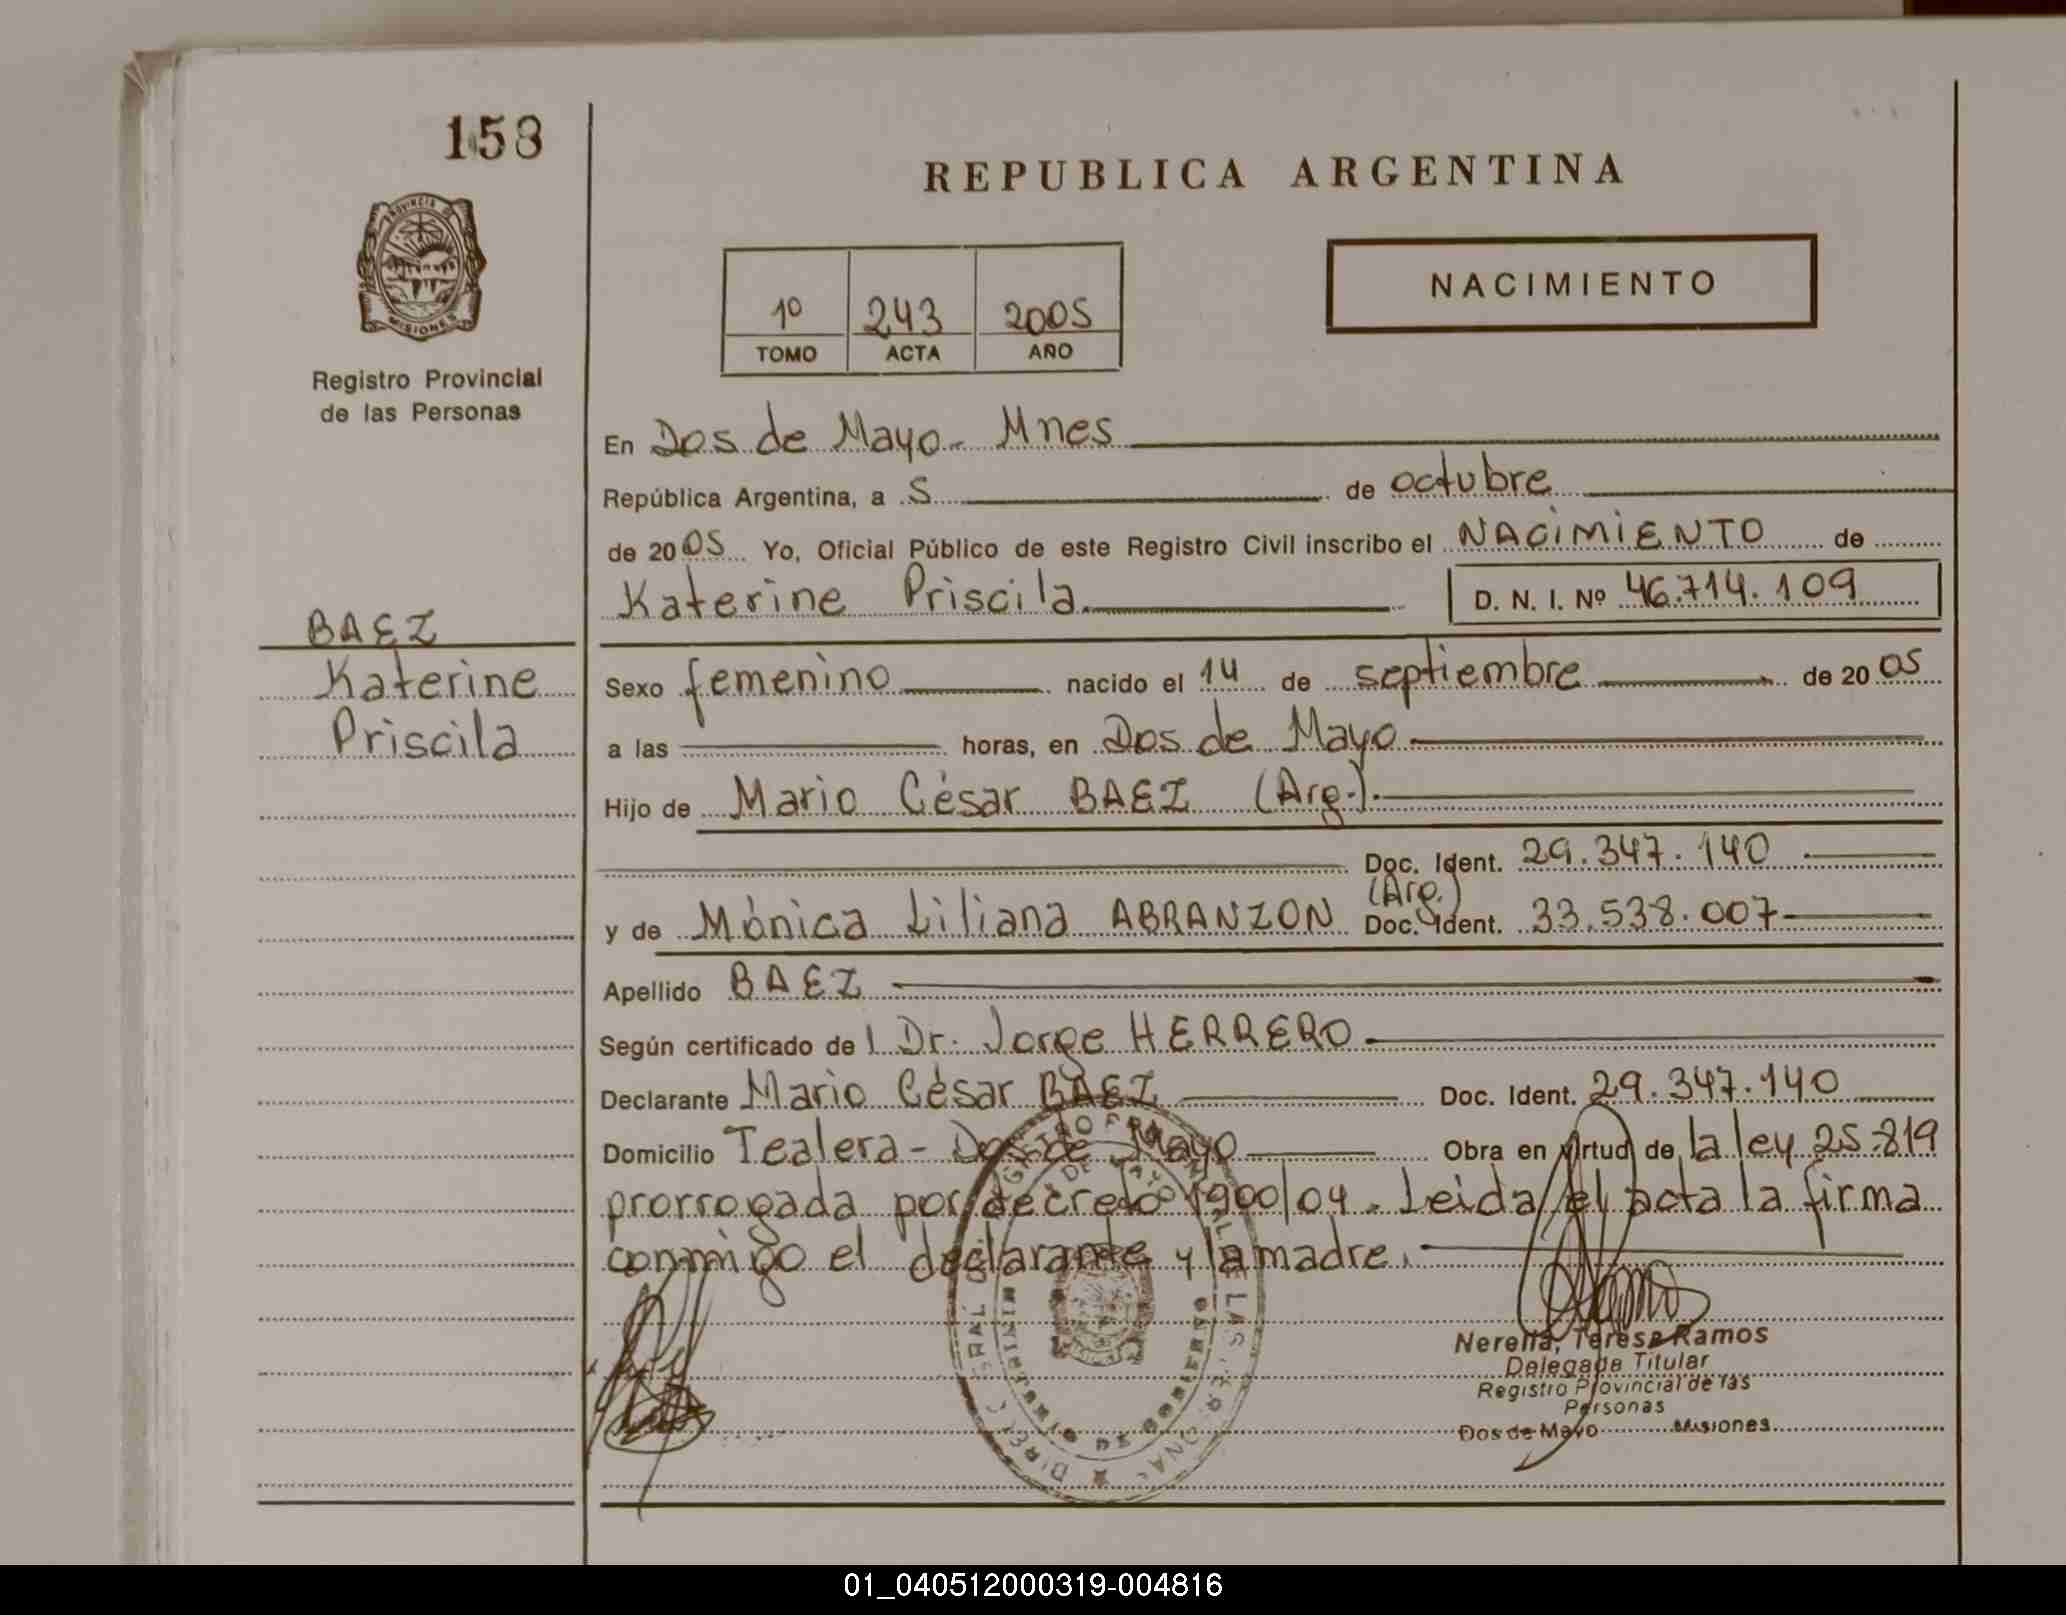 158
REPUBLICA ARGENTINA
PROVINCIA DE
MISIONES
Registro Provincial
de las Personas
1º 243 2005
TOMO ACTA AÑO
NACIMIENTO
En Dos de Mayo - Mnes
República Argentina, a 5 de octubre
de 2005 Yo, Oficial Público de este Registro Civil inscribo el NACIMIENTO de
Katerine Priscila D. N. I. Nº 46.714.109
BAEZ
Katerine
Priscila
Sexo femenino nacido el 14 de septiembre de 2005
a las horas, en Dos de Mayo
Hijo de Mario César BAEZ (Arg.)
Doc. Ident. 29.347.140
(Arg.)
y de Mónica Liliana ABRANZON Doc. Ident. 33.538.007
Apellido BAEZ
Según certificado del Dr. Jorge HERRERO
Declarante Mario César BAEZ Doc. Ident. 29.347.140
Domicilio Tealera - Dos de Mayo Obra en virtud de la ley 25.819
prorrogada por decreto 1900/04. Leida el acta la firma
conmigo el declarante y la madre.
Nerella, Teresa Ramos
Delegada Titular
Registro Provincial de las
Personas
Dos de Mayo Misiones
01_040512000319-004816